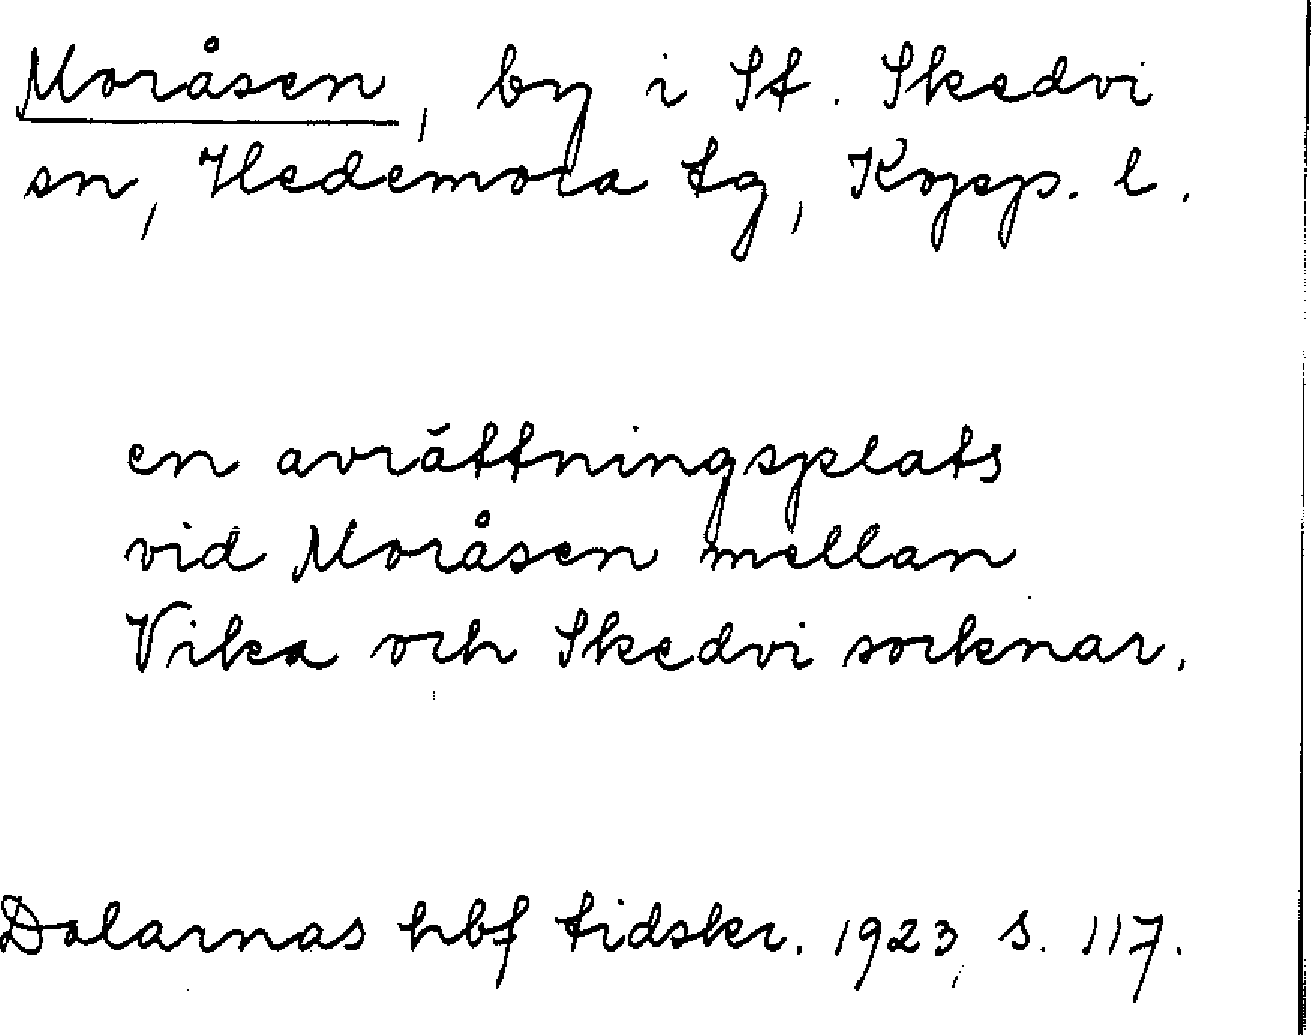 Moråsen, by i St. Skedvi
sn, Hedemora tg, Kopp. l.
en avrättningsplats
vid Moråsen mellan
Vika och Skedvi socknar.
Dalarnas hbf tidskr. 1923, s. 117.